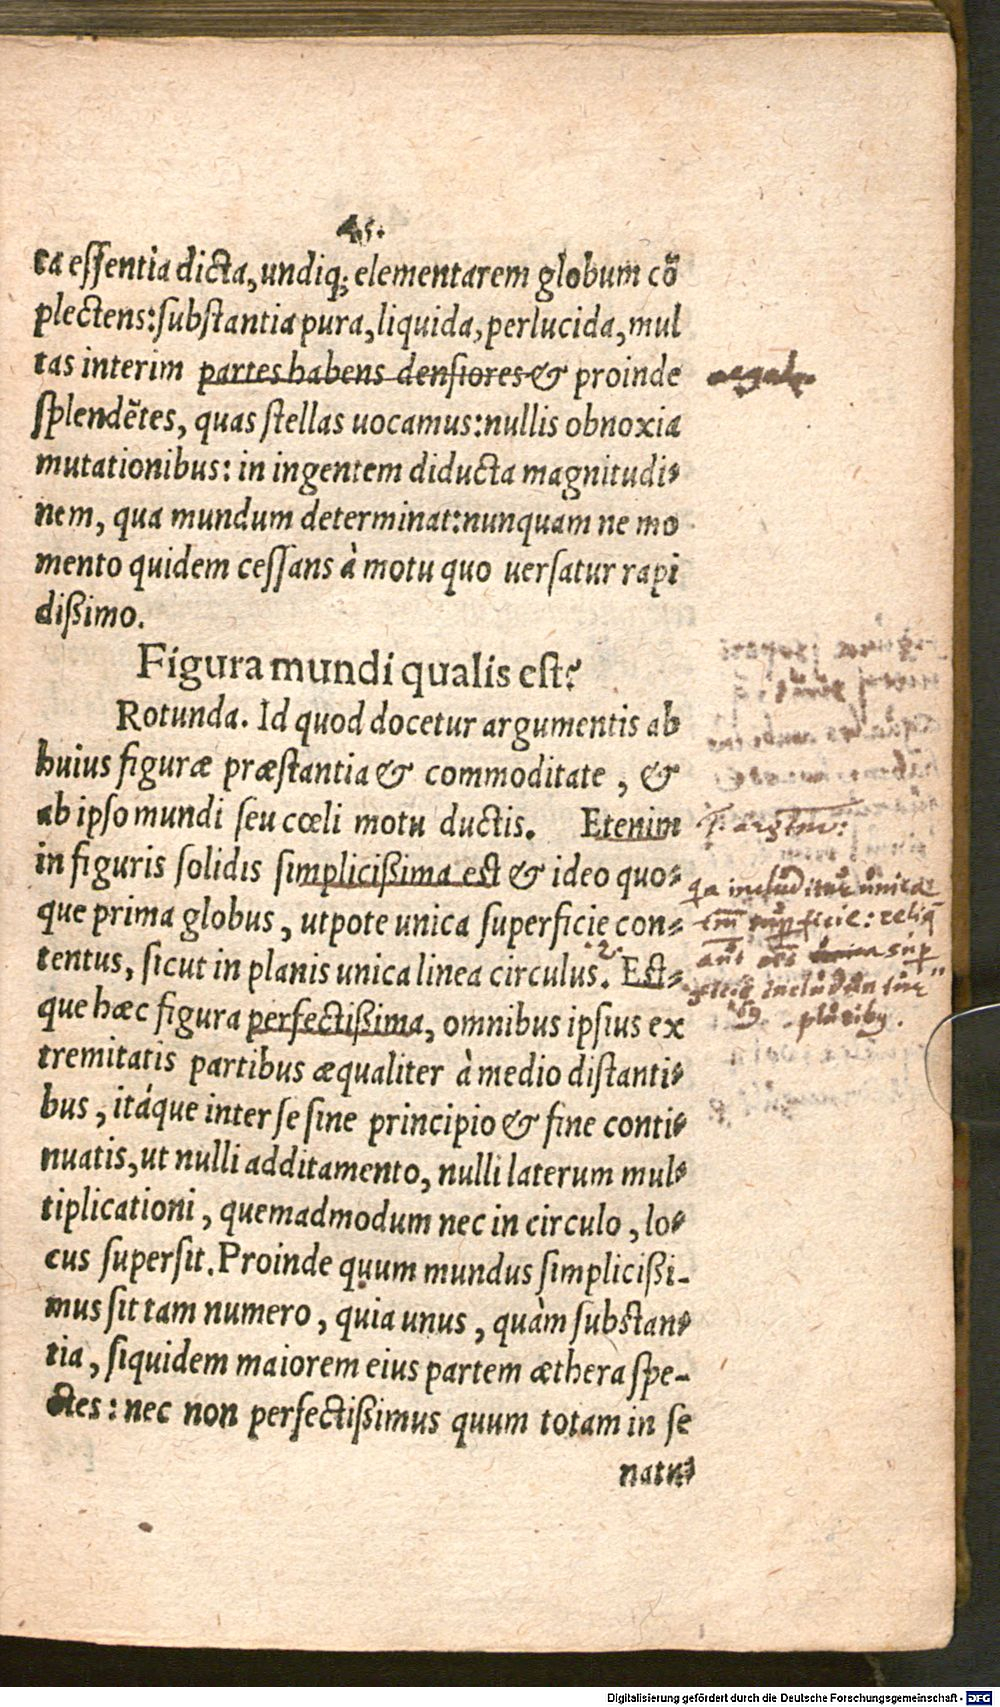 45.
ta essentia dicta, undiq; elementarem globum cõ
plectens: substantia pura, liquida, perlucida, mul
tas interim partes habens densiores & proinde
splendẽtes, quas stellas uocamus: nullis obnoxia
mutationibus: in ingentem diducta magnitudi-
nem, qua mundum determinat: nunquam ne mo
mento quidem cessans à motu quo uersatur rapi
dißimo.
Figura mundi qualis est?
Rotunda. Id quod docetur argumentis ab
huius figuræ præstantia & commoditate, &
ab ipso mundi seu cœli motu ductis. Etenim
in figuris solidis simplicißima est & ideo quo-
que prima globus, utpote unica superficie con-
tentus, sicut in planis unica linea circulus. Est-
que hæc figura perfectißima, omnibus ipsius ex
tremitatis partibus æqualiter à medio distanti-
bus, itáque inter se sine principio & fine conti-
nuatis, ut nulli additamento, nulli laterum mul-
tiplicationi, quemadmodum nec in circulo, lo-
cus supersit. Proinde quum mundus simplicißi-
mus sit tam numero, quia unus, quàm substan-
tia, siquidem maiorem eius partem æthera spe-
ctes: nec non perfectißimus quum totam in se
natu-
includitur unica
pluribus.
Digitalisierung gefördert durch die Deutsche Forschungsgemeinschaft - DFG